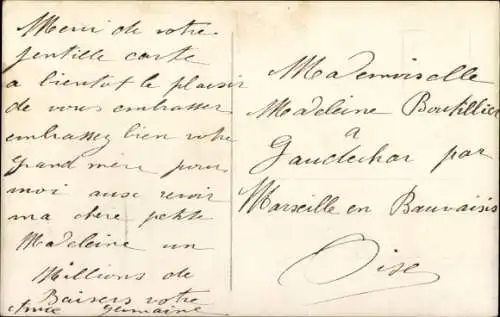 Merci de votre
gentille carte
a bientot le plaisir
de vous embrasser
embrassez bien votre
Grand mère pour
moi aussi revoir
ma chere petite
Madeleine un
Millions de
Baisers votre
Amie Germaine
Mademoiselle
Madeleine Boutillier
a
Gaudechar par
Marseille en Beauvaisis
Oise